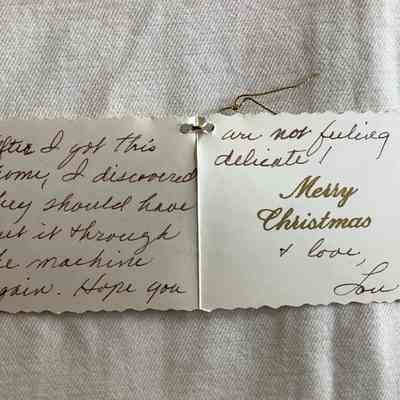 fter I got this
ome, I discovered
hey should have
ut it through
he machine
gain. Hope you
are not feeling
delicate!
Merry
Christmas
& love,
Lou